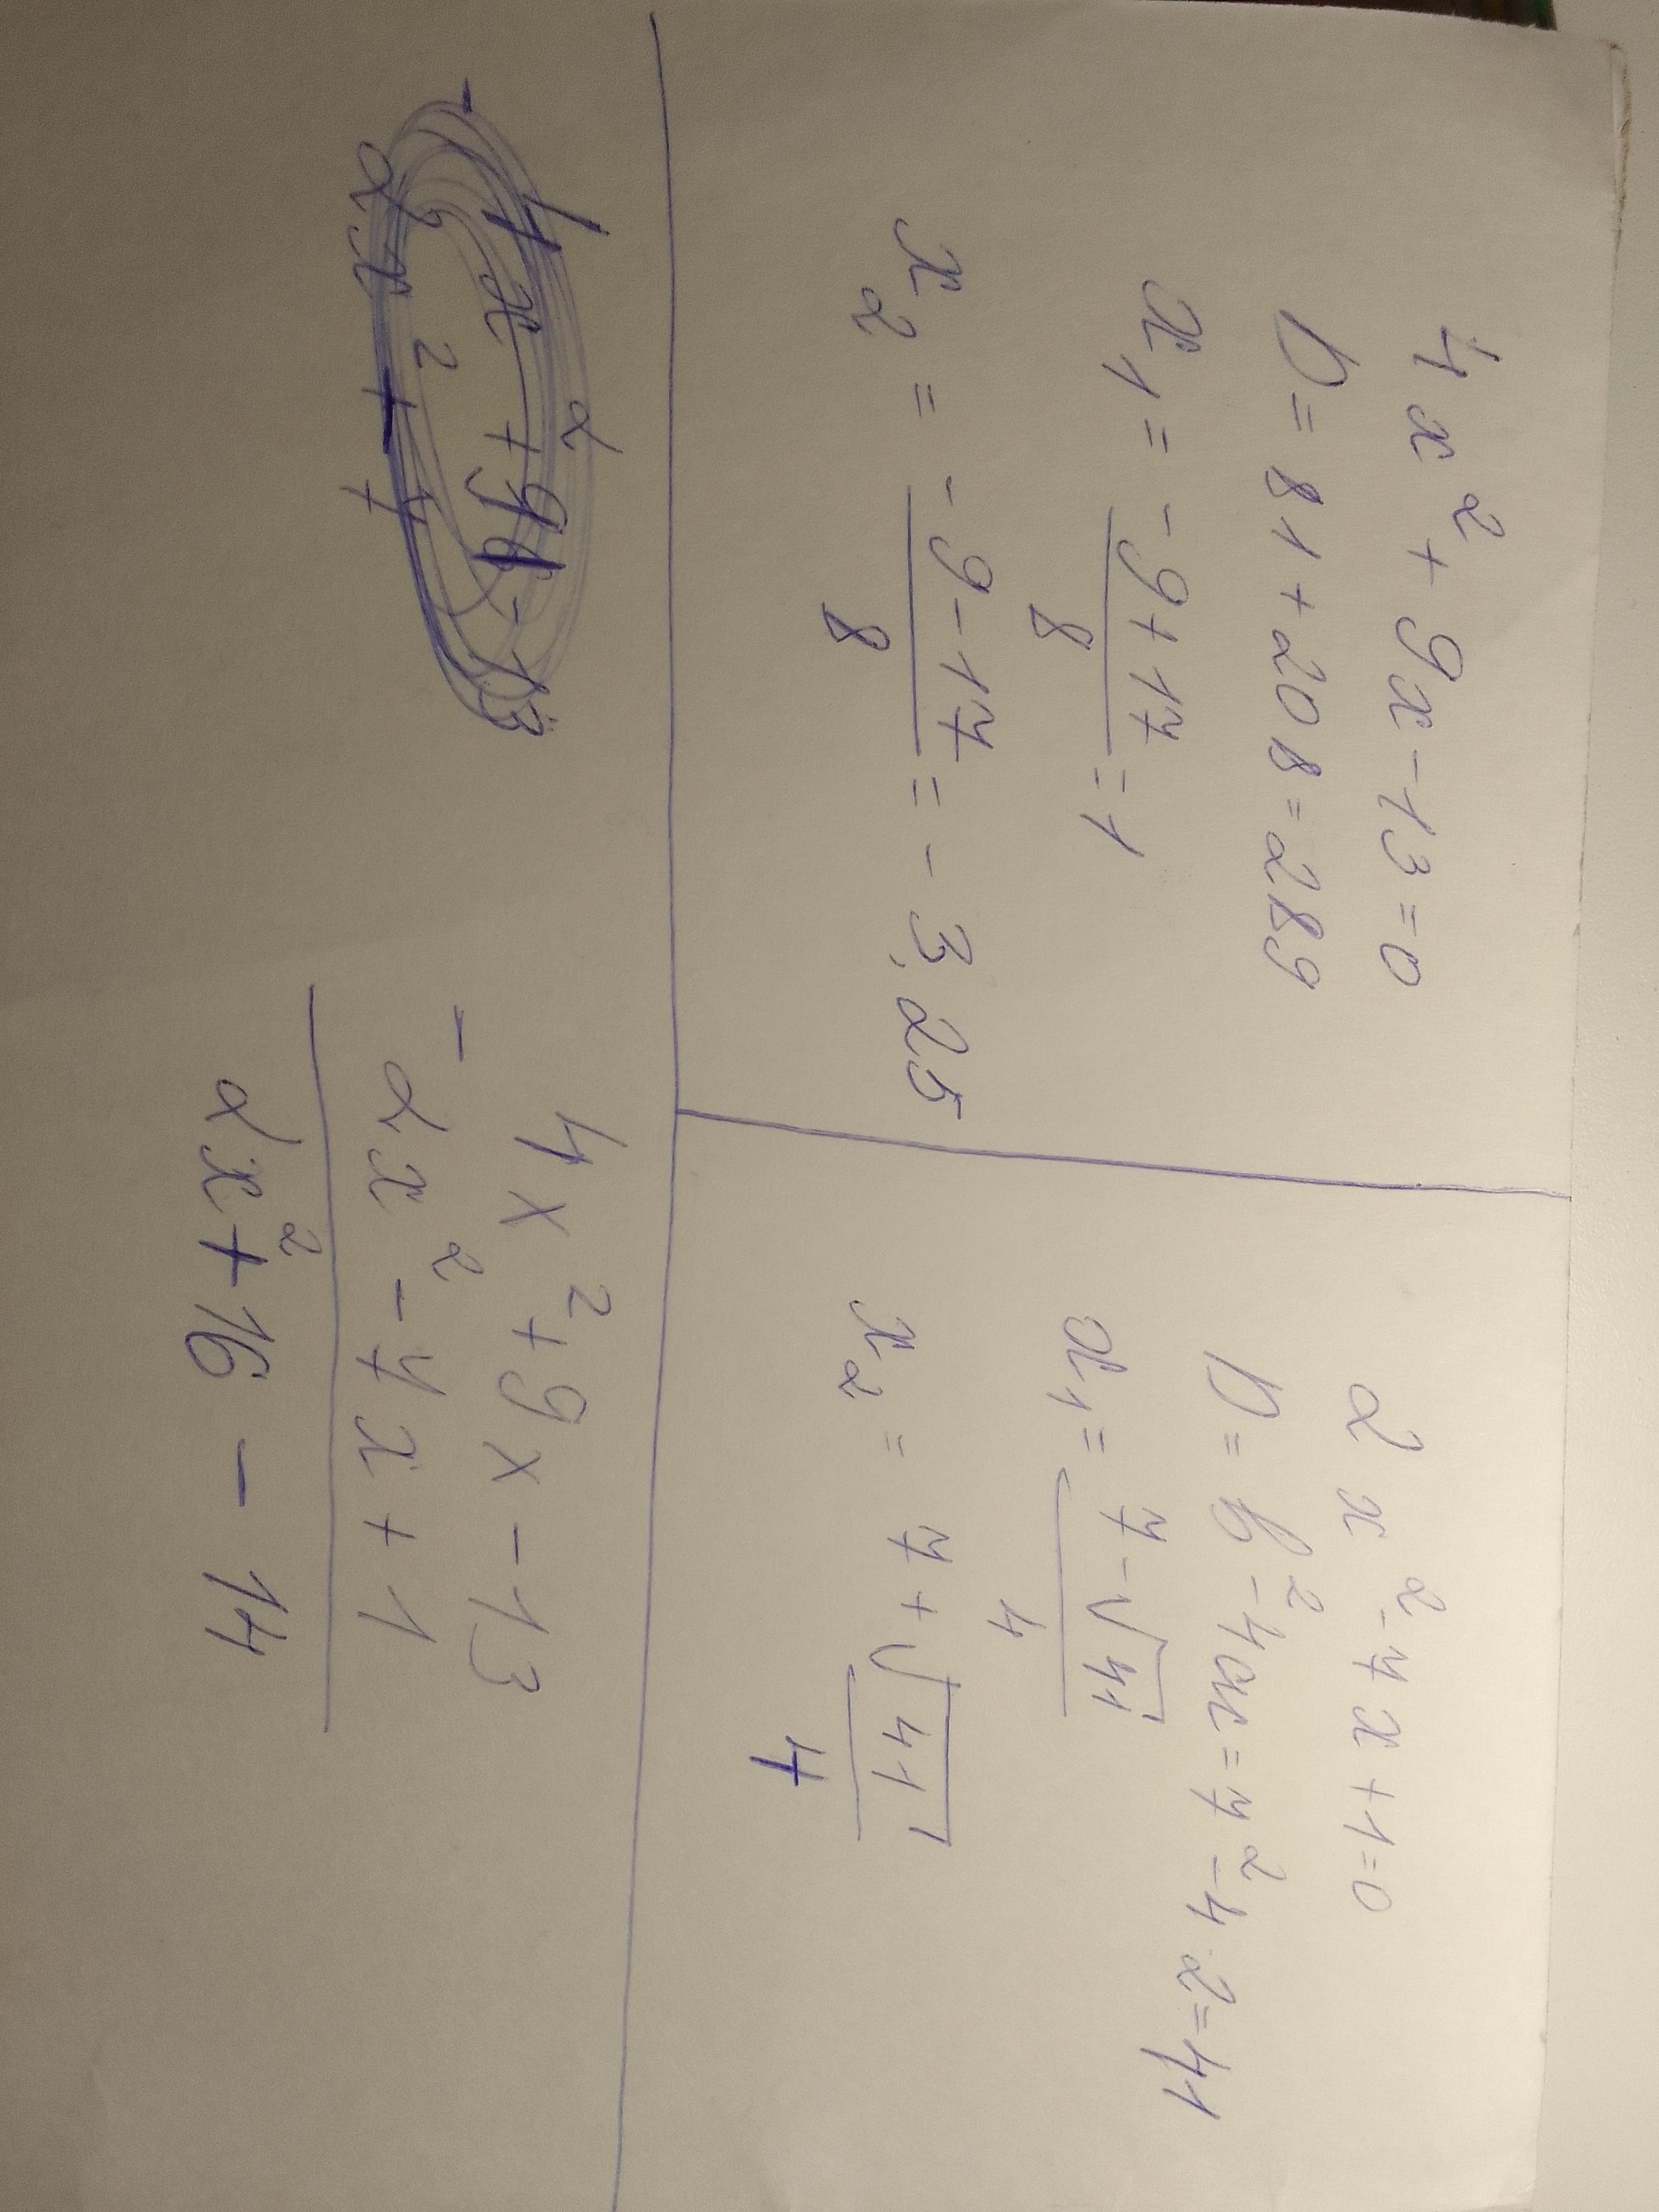 4x² + 9x - 13 = 0
D = 81 + 208 = 289
x₁ = (-9 + 17)/8 = 1
x₂ = (-9 - 17)/8 = - 3,25
2x² - 7x + 1 = 0
D = b² - 4ac = 7² - 4·2 = 41
x₁ = (7 - √41)/4
x₂ = (7 + √41)/4
4x² + 9x - 13
- 2x² - 7x + 1
2x² + 16 - 14